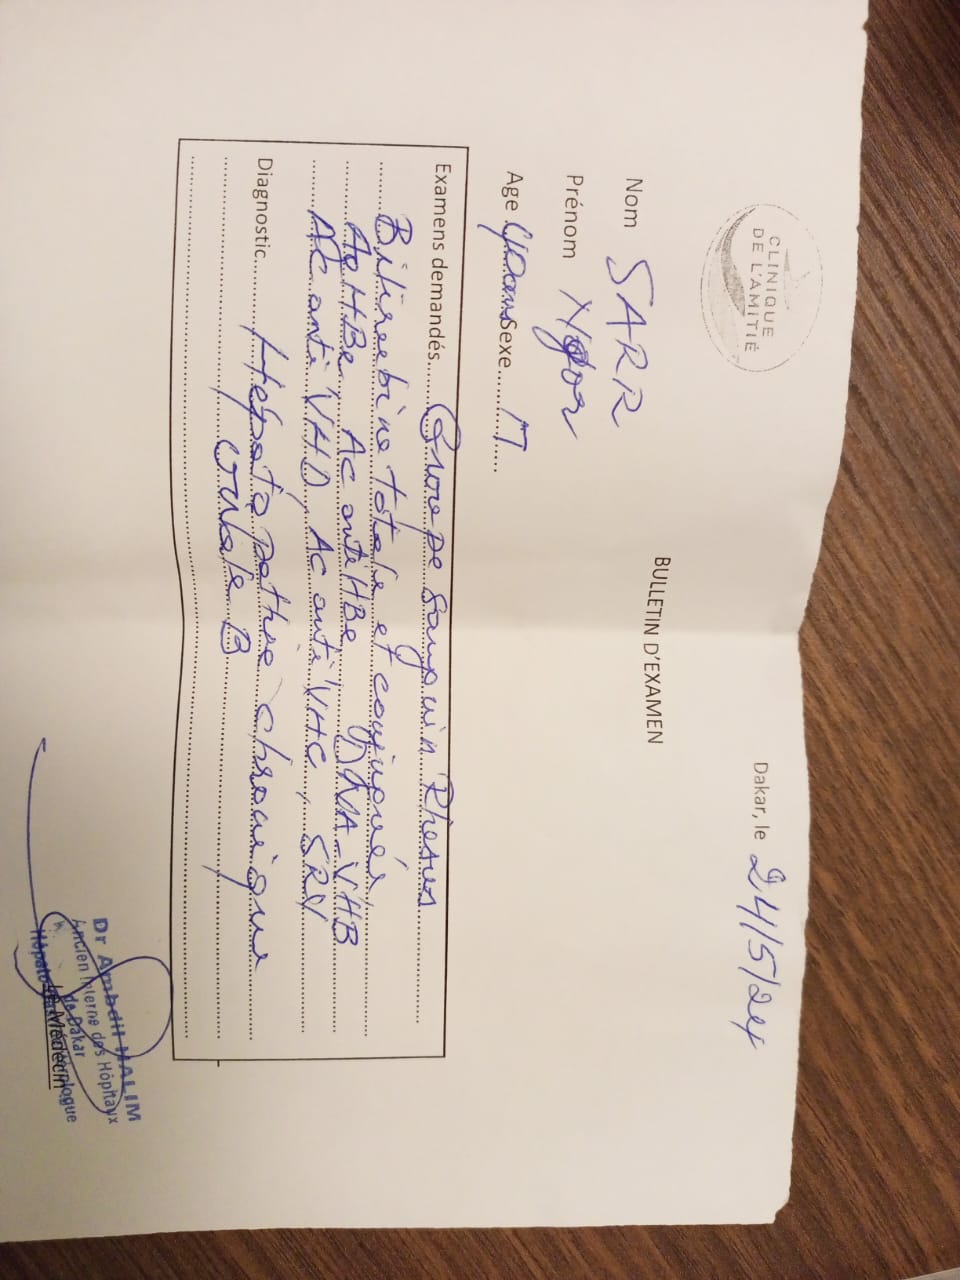 CLINIQUE
DE L'AMITIÉ
Dakar, le 24/5/24
BULLETIN D'EXAMEN
Nom SARR
Prénom
Age Sexe M
Examens demandés Groupe sanguin Rhesus
Bilirubine totale et conjuguée
AgHBe Ac anti HBe DNA-VHB
AC anti VHD, Ac anti VHC, SRV
Diagnostic Hépatopathie chronique
virale B
Le Médecin
Dr HALIM
Ancien Interne des Hôpitaux
de Dakar